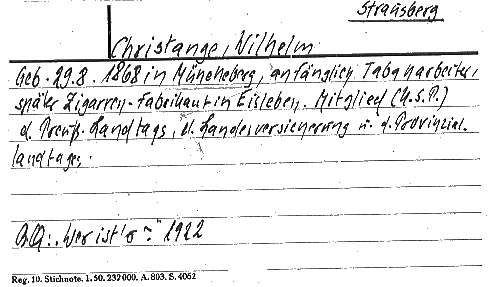 Strausberg
Christange, Wilhelm
Geb. 29.8.1868 in Müncheberg, anfänglich Tabakarbeiter,
später Zigarren-Fabrikant in Eisleben. Mitglied (U.S.P.)
d. Preuß. Landtags, d. Landesversicherung u. d. Provinzial-
landtages.
"Wer ist's?" 1922
Reg. 10. Stichnote. 1. 50. 232000. A. 803. S. 4062